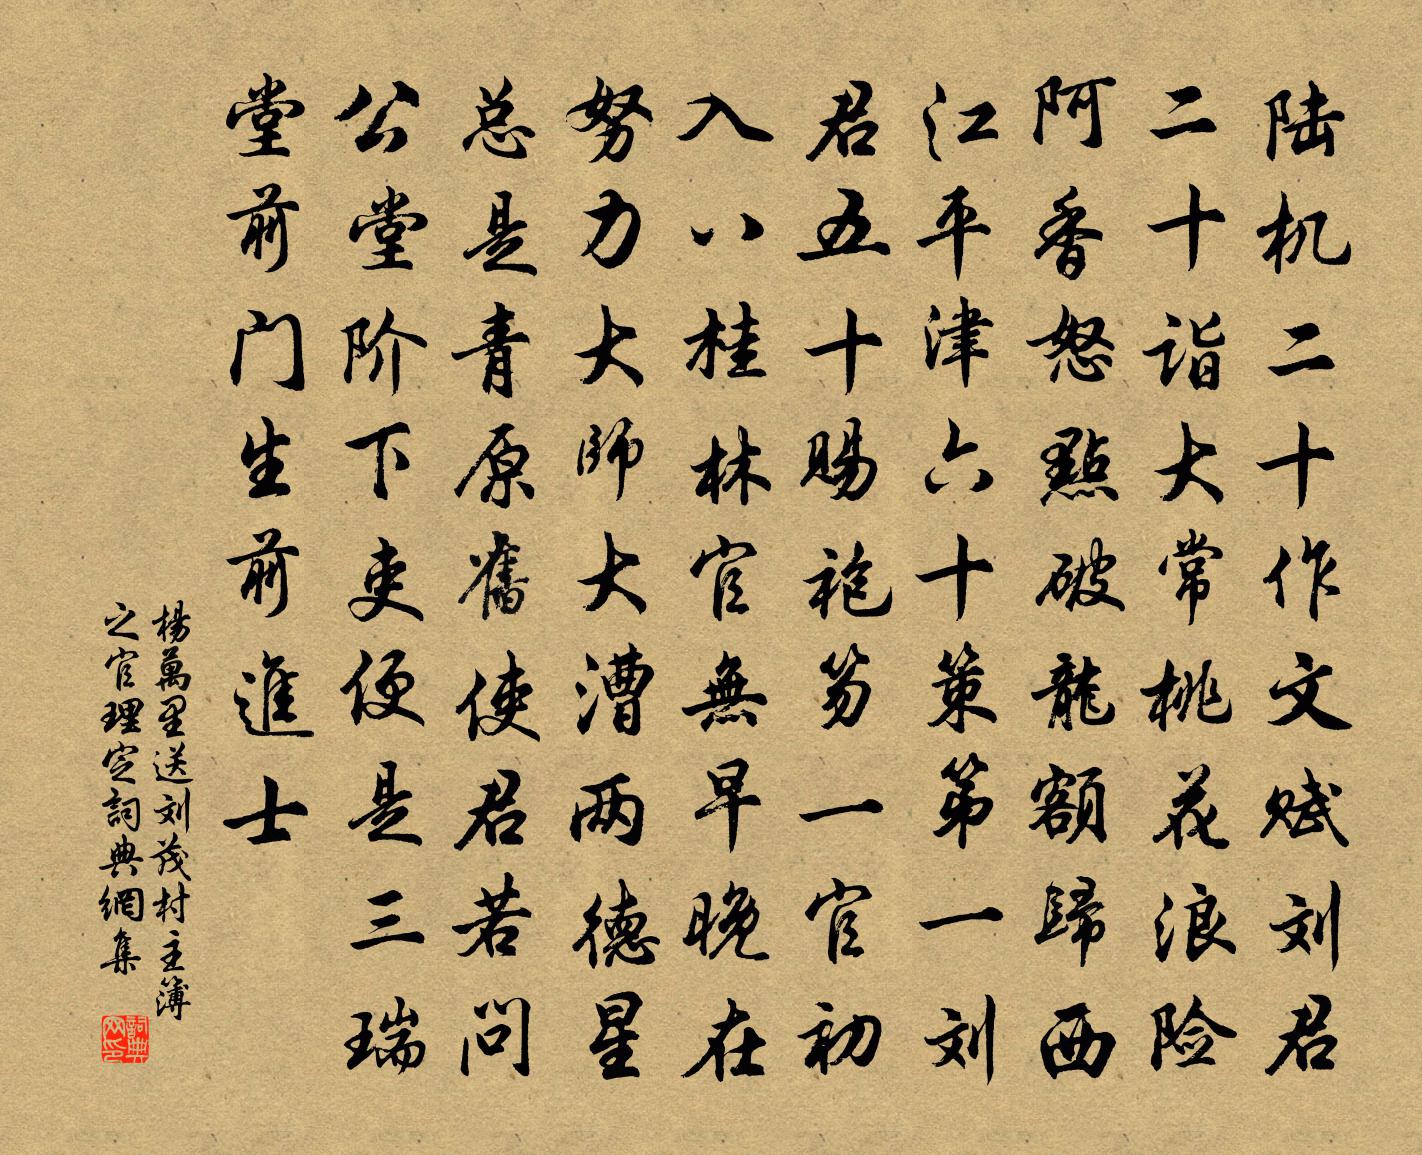 陆机二十作文赋刘君
二十诣大常桃花浪险
阿香怒點破龍額歸西
江平津六十策第一刘
君五十赐袍笏一官初
入八桂林官無早晚在
努力大師大漕两德星
总是青原舊使君若问
公堂阶下吏便是三瑞
堂前门生前進士
楊萬里送刘茂村主簿
之官理定詞典網集
詞典
网印